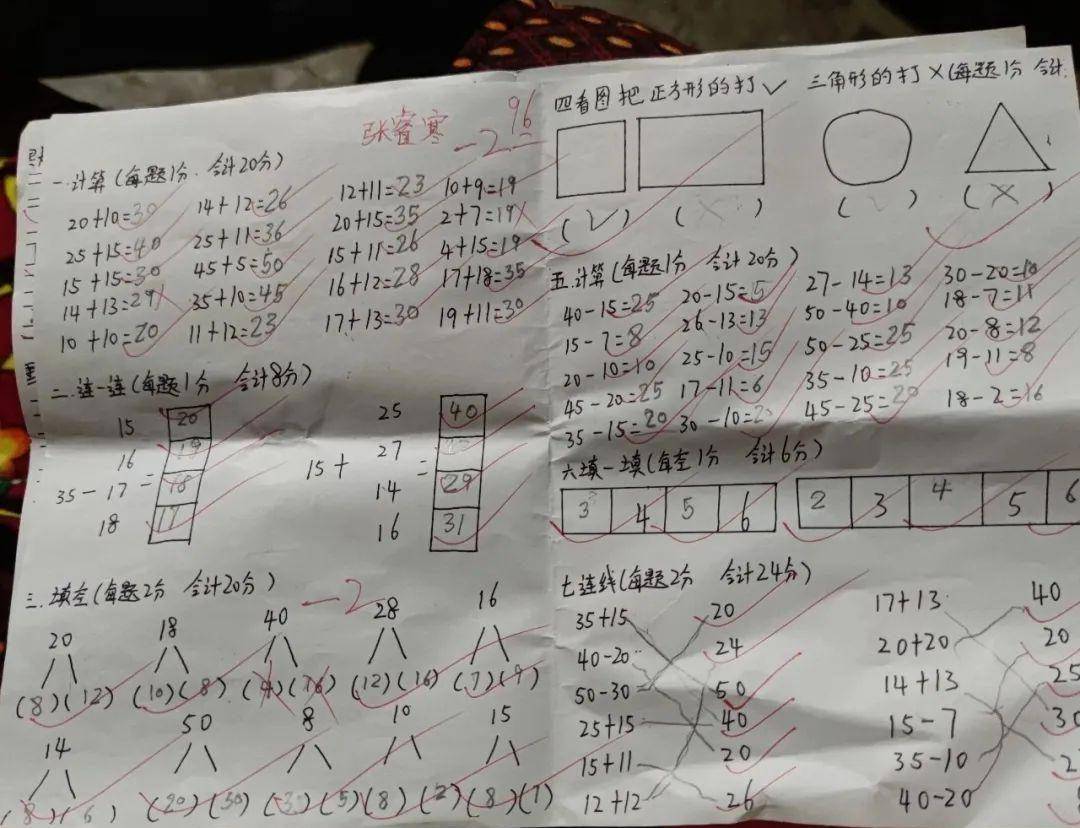 张睿寒 -2 96
一.计算(每题1分.合计20分)
20+10=30 14+12=26 12+11=23 10+9=19
25+15=40 25+11=36 20+15=35 2+7=19
15+15=30 45+5=50 15+11=26 4+15=19
14+13=29 35+10=45 16+12=28 17+18=35
10+10=20 11+12=23 17+13=30 19+11=30
二.连一连(每题1分 合计8分)
15 20 25 40
16 19 27
35- 17 = 18 15+ 14 = 29
18 17 16 31
三.填空(每题2分 合计20分) -2
20 18 40 28 16
(8)(12) (10)(8) (4)(16) (12)(16) (7)(9)
14 50 8 10 15
(8)(6) (20)(30) (3)(5) (8)(2) (8)(7)
四看图把正方形的打✓ 三角形的打×(每题1分 合计
(✓) (×) ( ) (×)
五.计算(每题1分 合计20分)
40-15=25 20-15=5 27-14=13 30-20=10
15-7=8 26-13=13 50-40=10 18-7=11
20-10=10 25-10=15 50-25=25 20-8=12
45-20=25 17-11=6 35-10=25 19-11=8
35-15=20 30-10=20 45-25=20 18-2=16
六填一填(每空1分 合计6分)
3 4 5 6 2 3 4 5 6
七连线(每题2分 合计24分)
35+15 20 17+13 40
40-20 24 20+20 20
50-30 50 14+13 25
25+15 40 15-7 30
15+11 20 35-10 2
12+12 26 40-20